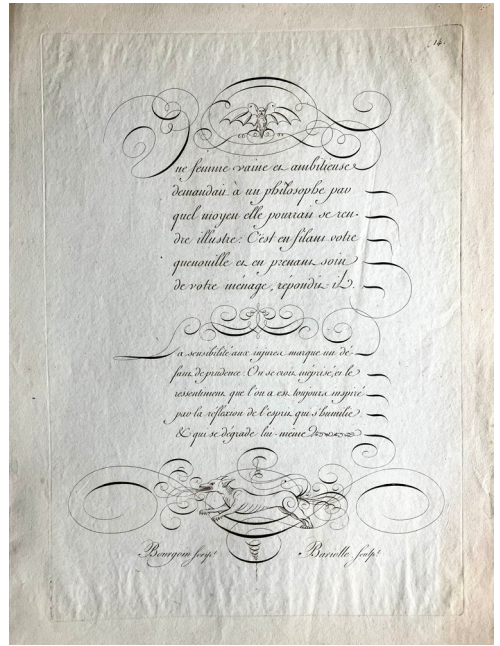 14.
Une femme vaine et ambitieuse
demandait à un philosophe par
quel moyen elle pourrait se ren-
dre illustre. C'est en filant votre
quenouille et en prenant soin
de votre ménage, répondit-il.
La sensibilité aux injures marque un dé-
faut de prudence. On se croit méprisé, et le
ressentiment que l'on a est toujours inspiré
par la réflexion de l'esprit qui s'humilie
& qui se dégrade lui-même
Bourgoin scrip.t Bariolle sculp.t